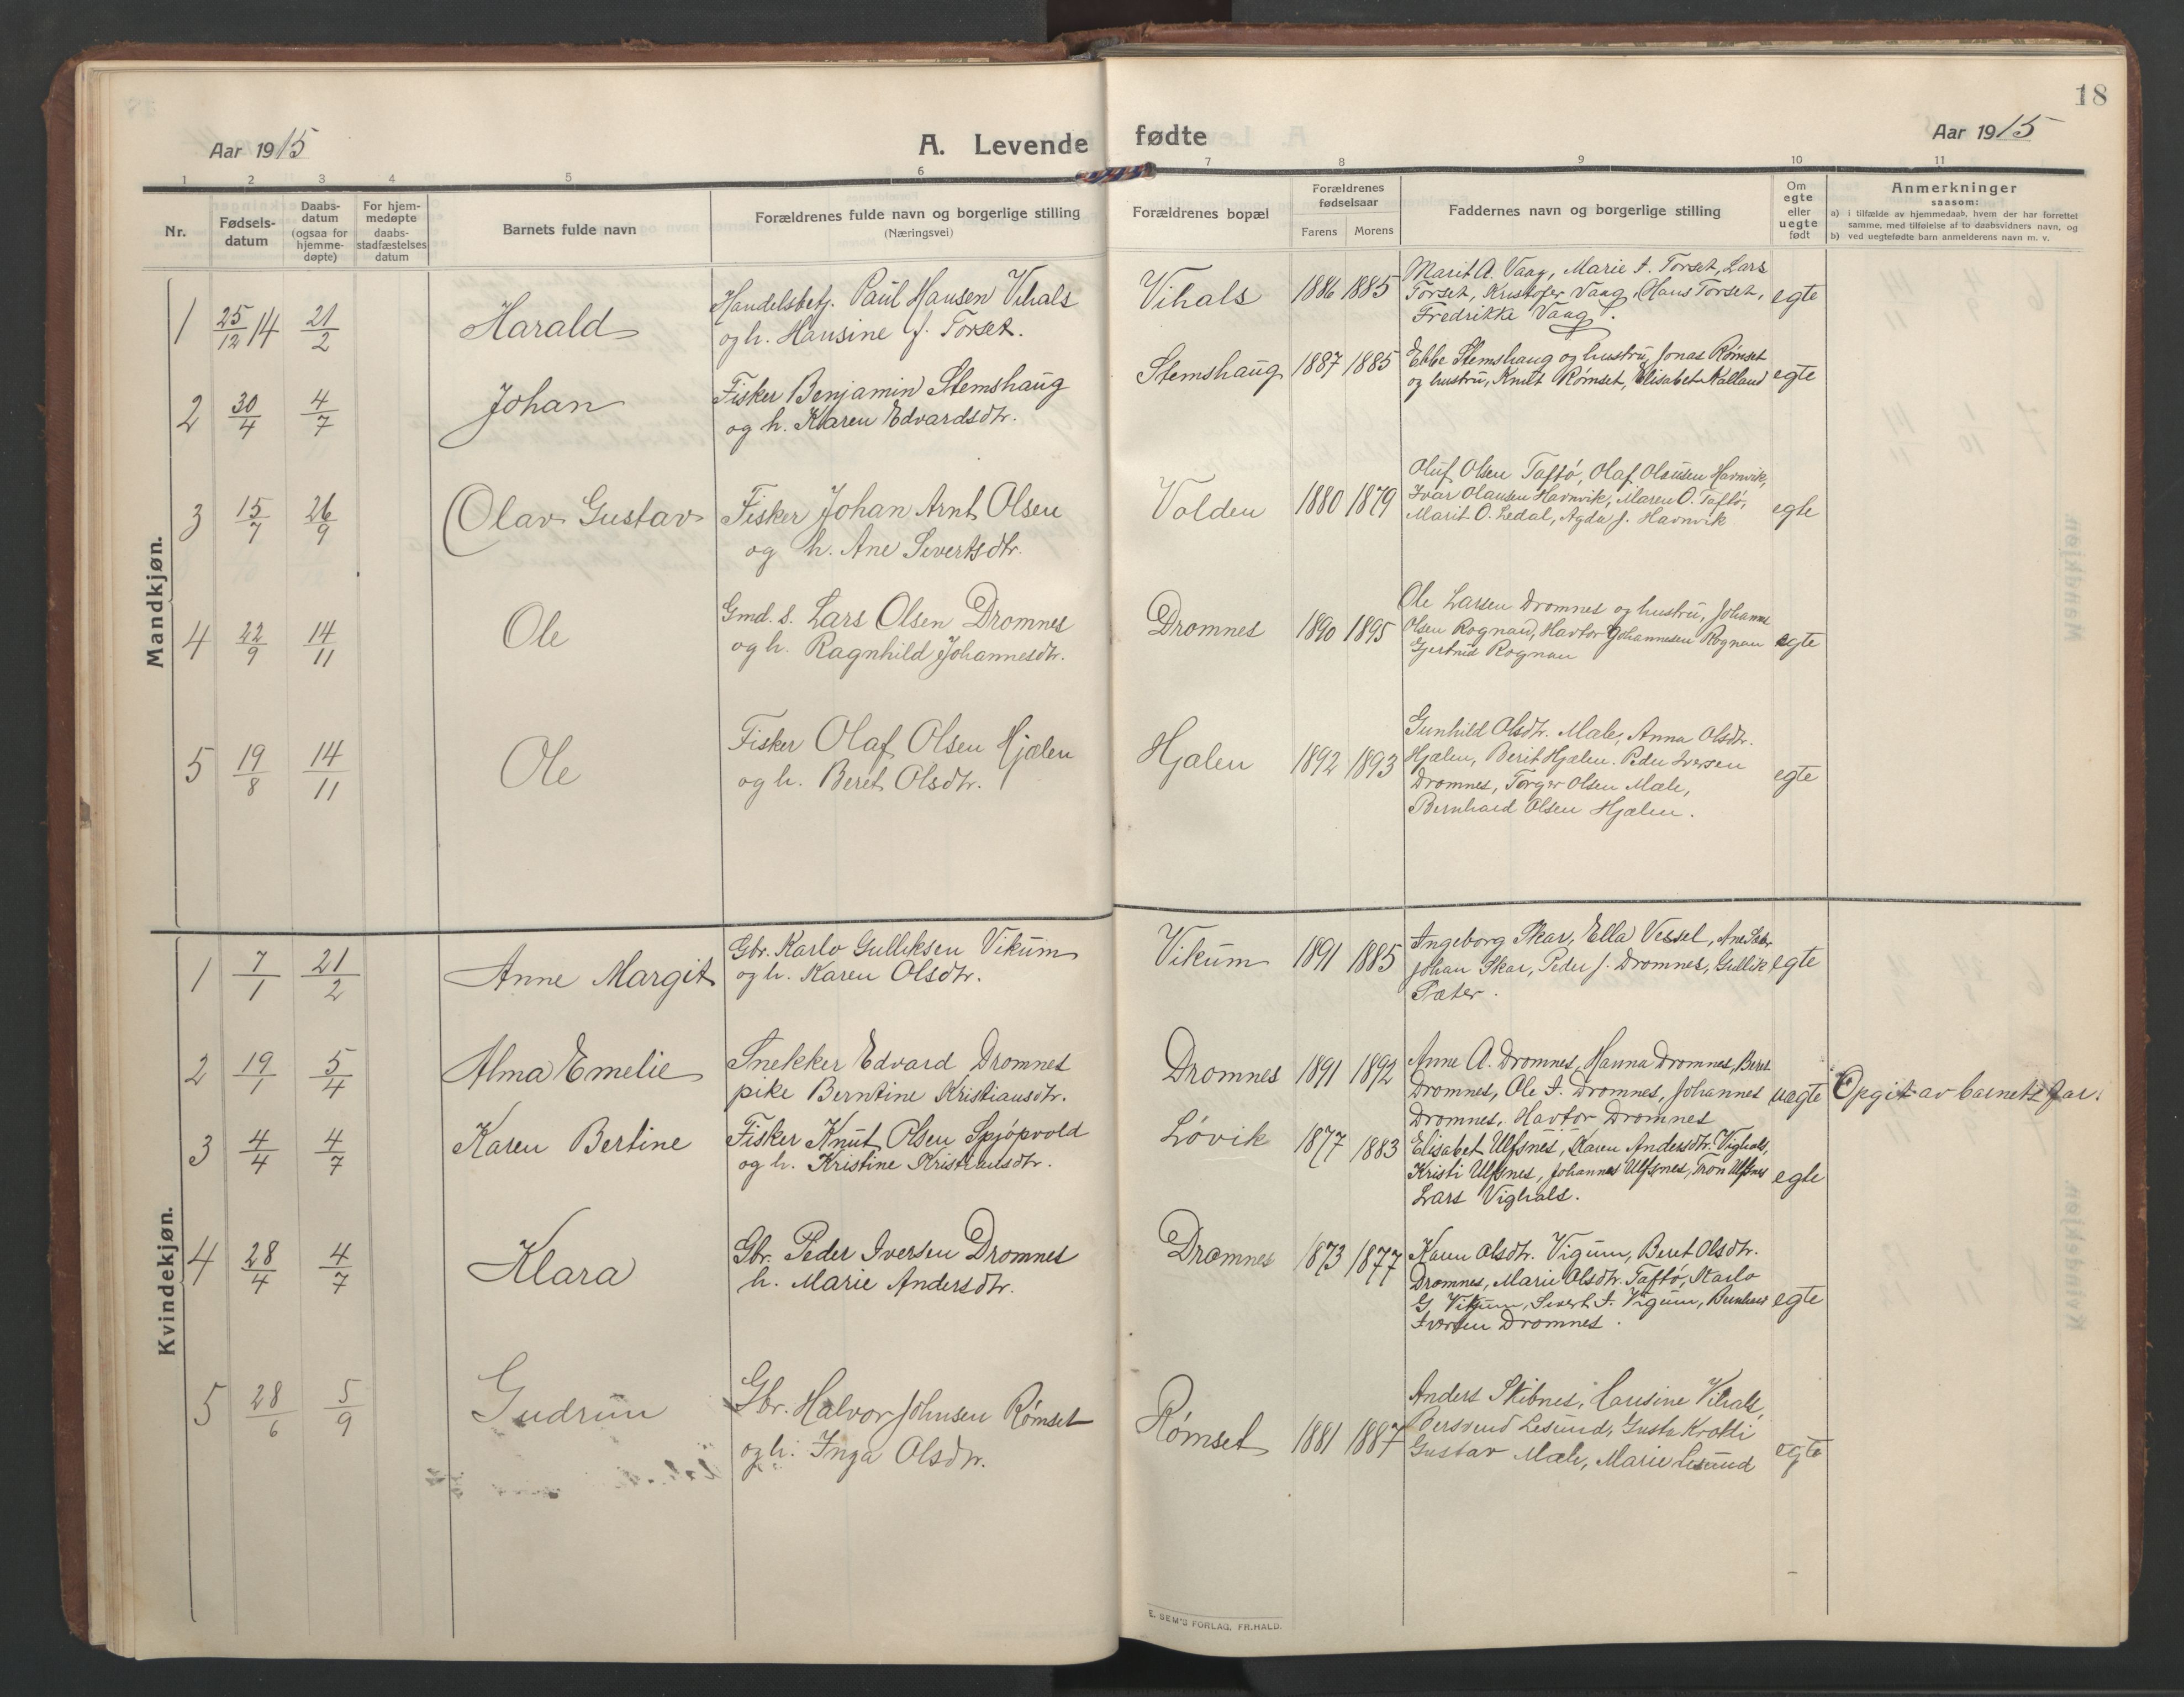 18
Aar 1915
A. Levende fødte
Aar 1915
1 2 3 4 5 6 7 8 9 10 11
Nr.
Fødsels-
datum
Daabs-
datum
(ogsaa for
hjemme-
døpte)
For hjem-
medøpte
daabs-
stadfæstelses
datum
Barnets fulde navn
Forældrenes fulde navn og borgerlige stilling
(Næringsvei)
Forældrenes bopæl
Forældrenes
fødselsaar
Farens Morens
Faddernes navn og borgerlige stilling
Om
egte
eller
uegte
født
Anmerkninger
saasom:
a) i tilfælde av hjemmedaab, hvem der har forrettet
samme, med tilføielse af to daabsvidners navn, og
b) ved uegtefødte barn anmelderens navn m. v.
Mandkjøn.
1 25/12 14 21/2 Harald
Handelsbetj. Paul Hansen Vihals
og h. Hansine f. Torset.
Vihals 1886 1885
Marit A. Vaag, Marie I. Torset, Lars
Torset, Kristofer Vaag, Hans Torset,
Fredrikke Vaag.
egte
2 30/4 4/7 Johan
Fisker Benjamin Stemshaug
og h. Karen Edvardsdtr.
Stemshaug 1887 1885
Ebbe Stemshaug og hustru, Jonas Rømset
og hustru, Knut Rømset, Elisabet Kalland
egte
3 15/7 26/9 Olav Gustav
Fisker Johan Arnt Olsen
og h. Ane Sivertsdtr.
Volden 1880 1879
Oluf Olsen Taftø, Olaf Olausen Havnvik,
Ivar Olausen Havnvik, Maren O. Taftø,
Marit O. Ledal, Agda J. Havnvik
egte
4 22/9 14/11 Ole
Gmd. s. Lars Olsen Dromnes
og h. Ragnhild Johannesdtr.
Dromnes 1890 1895
Ole Larsen Dromnes og hustru, Johannes
Olsen Rognan, Havtor Johannesen Rognan
Gjertrud Rognan
egte
5 19/8 14/11 Ole
Fisker Olaf Olsen Hjælen
og h. Beret Olsdtr.
Hjælen 1892 1893
Gunhild Olsdtr. Mæle, Anna Olsdtr.
Hjælen, Berit Hjælen. Peder Iversen
Dromnes, Torger Olsen Mæle,
Bernhard Olsen Hjælen.
egte
Kvindekjøn.
1 7/1 21/2 Anne Margit
Gbr. Karlo Gulliksen Vikum
og h. Karen Olsdtr.
Vikum 1891 1885
Ingeborg Skar, Ella Vessel, Ane
Johan Skar, Peder J. Dromnes, Gullik
Sæter.
egte
2 19/1 5/4 Alma Emelie
Snekker Edvard Dromnes
pike Berntine Kristiansdtr.
Dromnes 1891 1892
Anne A. Dromnes, Hanna Dromnes, Beret
Dromnes, Ole I. Dromnes, Johannes
Dromnes, Havtor Dromnes
uegte
Opgit av barnets far.
3 4/4 4/7 Karen Bertine
Fisker Knut Olsen Spjøpvold
og h. Kristine Kristiansdtr.
Løvik 1877 1883
Elisabet Ulfsnes, Karen Andersdtr. Vighals,
Kristi Ulfsnes, Johannes Ulfsnes, Tron Ulfsnes
Lars Vighals.
egte
4 28/4 4/7 Klara
Gbr. Peder Iversen Dromnes
h. Marie Andersdtr.
Dromnes 1873 1877
Karen Olsdtr. Vigum, Beret Olsdtr.
Dromnes, Marie Olsdtr. Taftø, Karlo
G. Vikum, Sivert I. Vigum, Bernhard
Iversen Dromnes.
egte
5 28/6 5/9 Gudrun
Gbr. Halvor Johnsen Rømset
og h. Inga Olsdtr.
Rømset 1881 1887
Anders Skibnes, Hansine Vihals,
Lesund, Gusta
Gustav Mæle, Marie Lesund
egte
E. SEM'S FORLAG, FR.HALD.